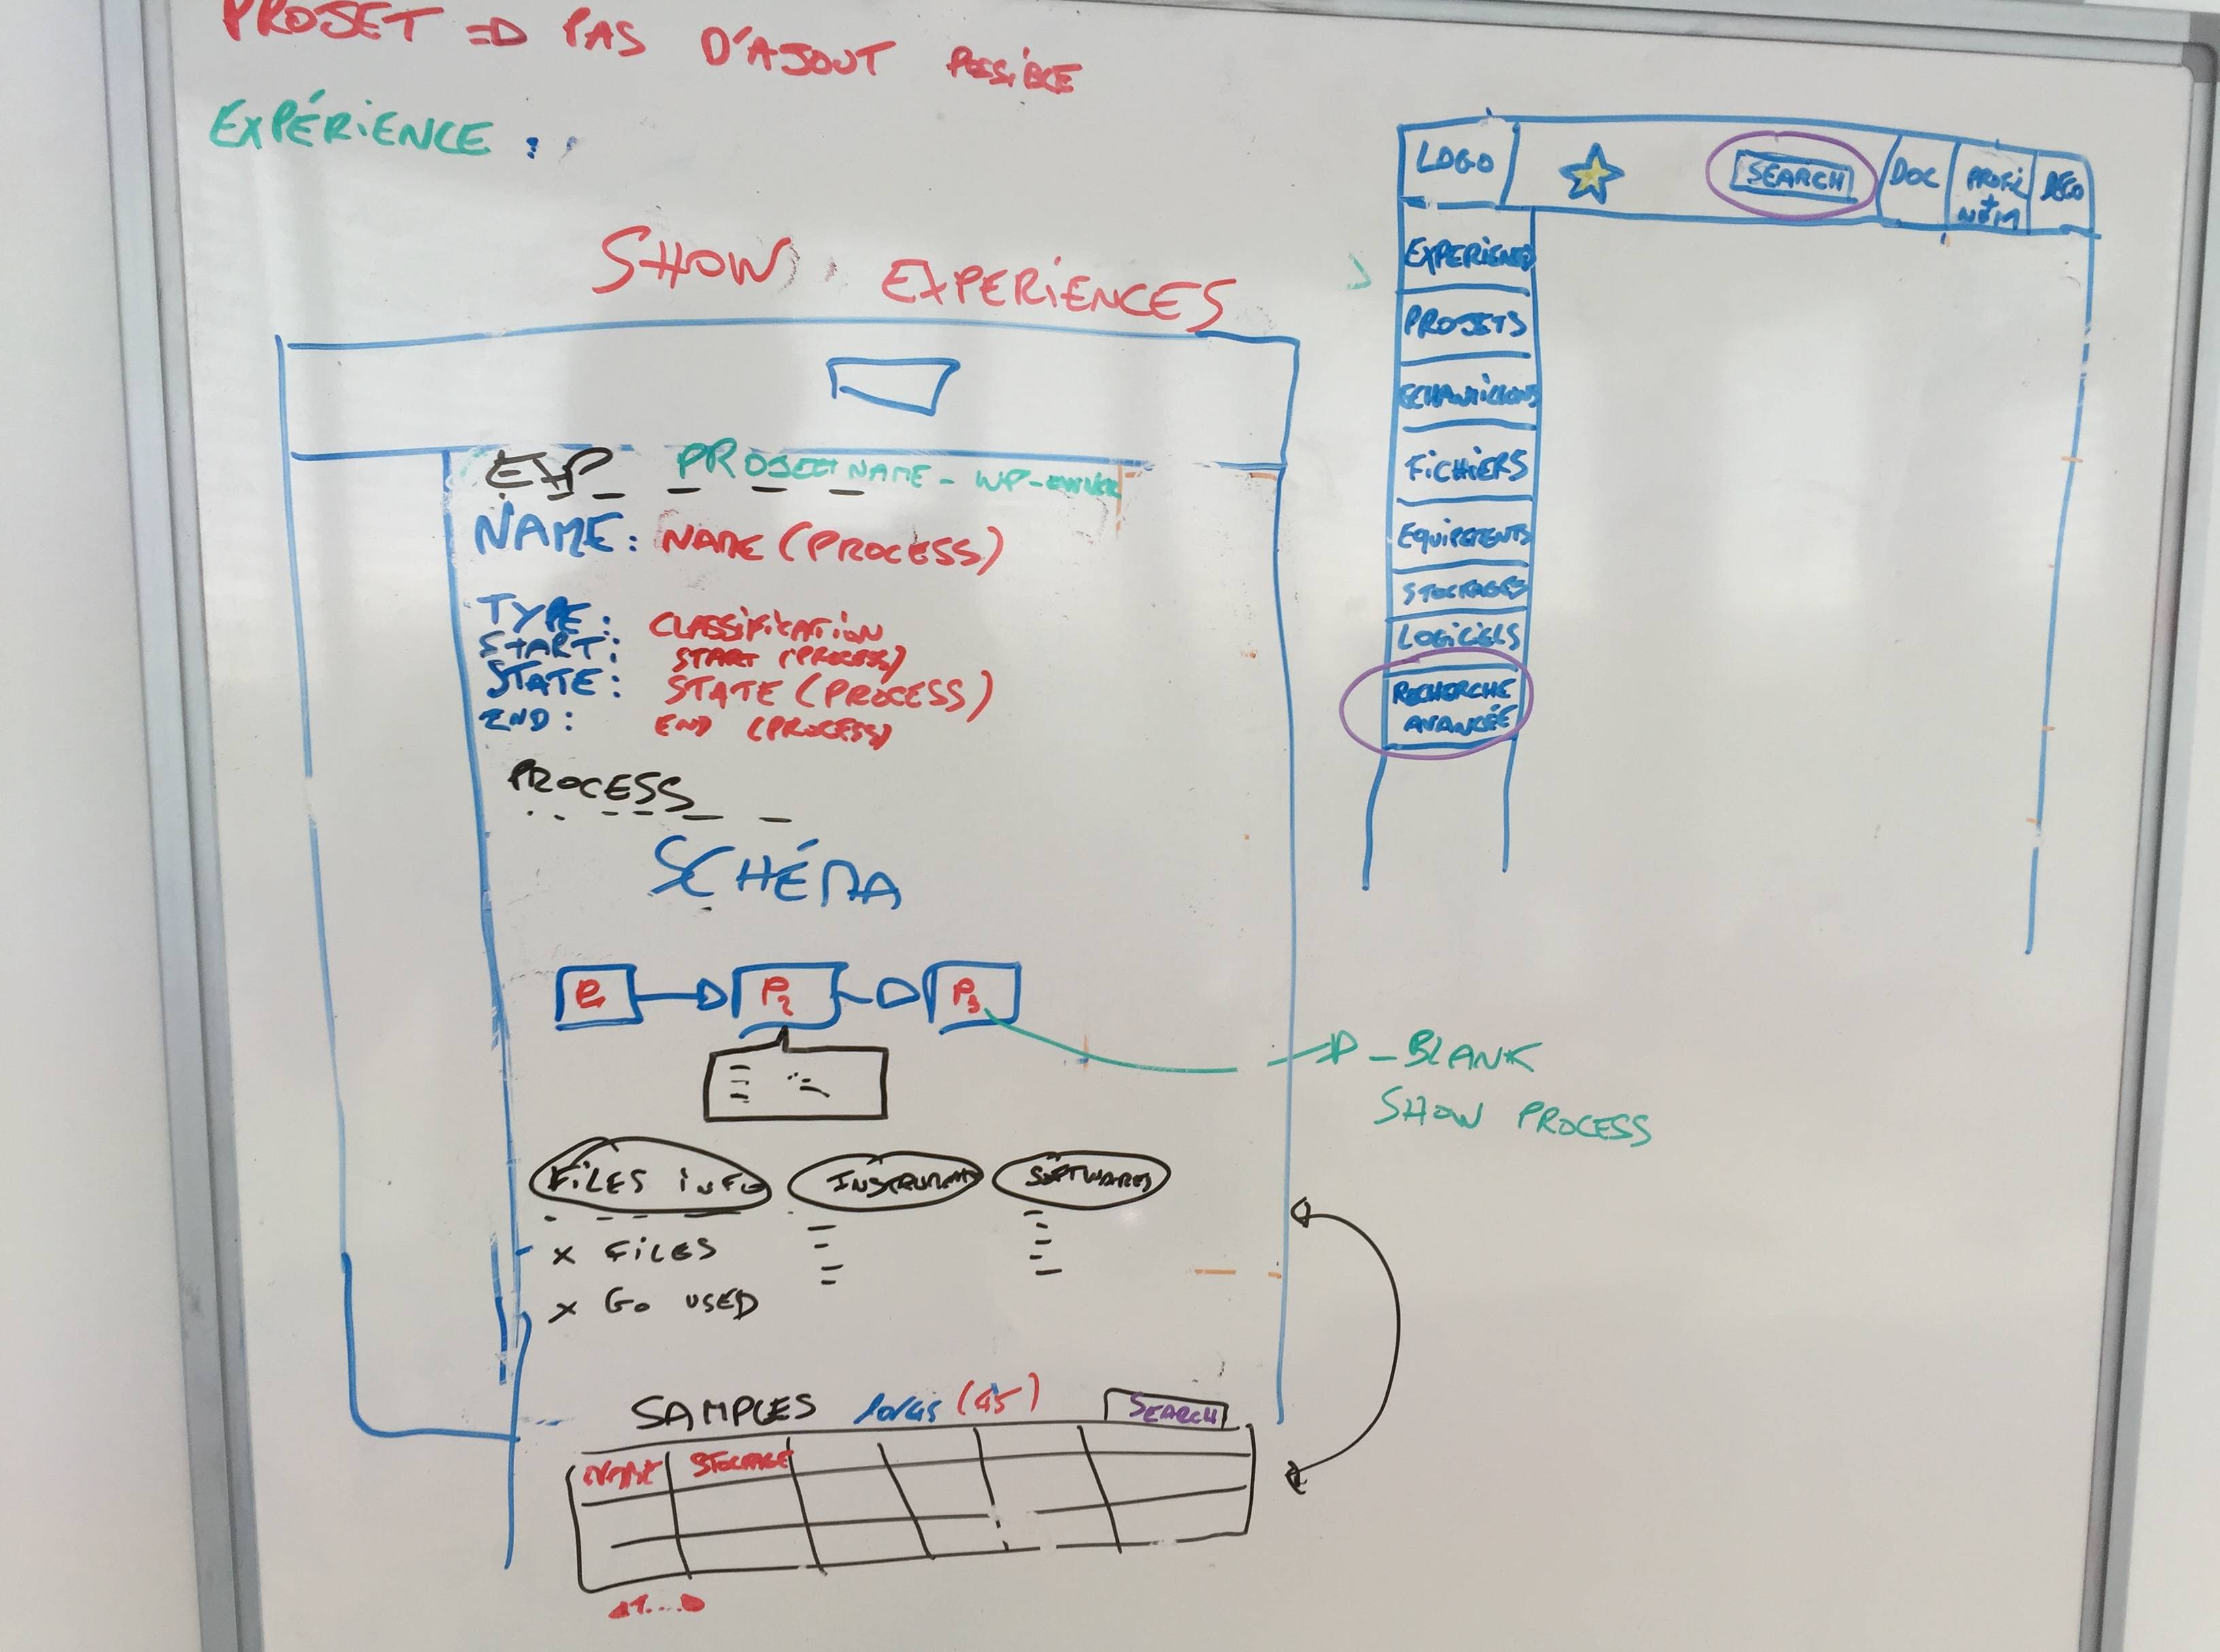 PROJET => PAS D'AJOUT POSSIBLE
EXPÉRIENCE :
SHOW EXPERIENCES
EXP PROJECT NAME - WP - OWNER
NAME : NAME (PROCESS)
TYPE : CLASSIFICATION
START : START (PROCESS)
STATE : STATE (PROCESS)
END : END (PROCESS)
PROCESS
SCHÉMA
P2 P3
- BLANK
SHOW PROCESS
FILES INFO INSTRUMENTS SOFTWARES
x FILES
x Go USED
SAMPLES (45) SEARCH
NAME STOCKAGE
LOGO SEARCH DOC PROFIL + NOM DECO
EXPERIENCES
PROJETS
ECHANTILLONS
FICHIERS
EQUIPEMENTS
STOCKAGES
LOGICIELS
RECHERCHE
AVANCÉE